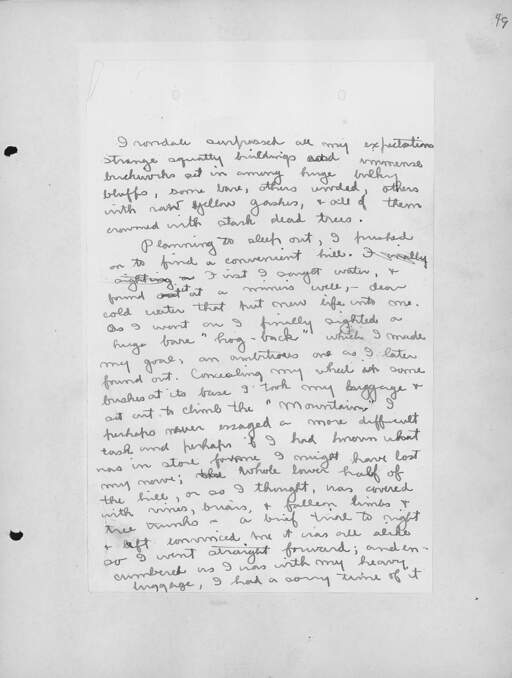 49
Irondale surpassed all my expectations
strange squatty buildings and immense
brickworks set in among huge bulky
bluffs, some bare, others wooded, others
with raw yellow gashes, & all of them
crowned with stark dead trees.
Planning to sleep out, I pushed
on to find a convenient hill. I really
sighting a First I sought water, &
found it at a miners well, – clear
cold water that put new life into me.
As I went on I finally sighted a
huge bare "hog-back" which I made
my goal, an ambitious one as I later
found out. Concealing my wheel in some
bushes at its base I took my luggage &
set out to climb the "Mountain." I
perhaps never essayed a more difficult
task and perhaps if I had known what
was in store for me I might have lost
my nerve; the whole lower half of
the hill, or so I thought, was covered
with vines, briars, & fallen limbs &
tree trunks – a brief trial to right
& left convinced me it was all alike
so I went straight forward; and en-
cumbered as I was with my heavy
luggage, I had a sorry time of it